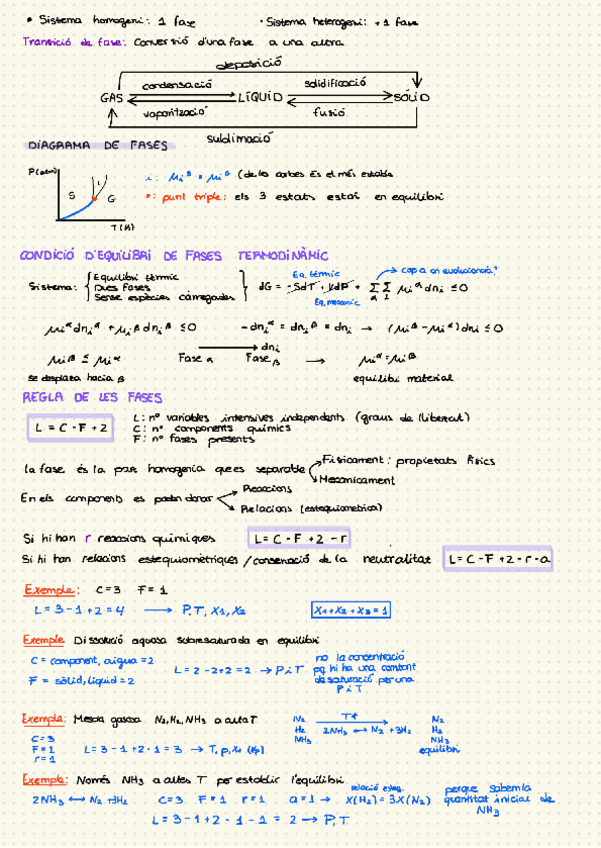 • Sistema homogeni: 1 fase · Sistema heterogeni: +1 fase
Transició de fase: Conversió d'una fase a una altra
deposició
condensació solidificació
GAS LÍQUID SÒLID
vaporització fusió
sublimació
DIAGRAMA DE FASES
P(atm)
S L G
T(K)
•: punt triple: els 3 estats estai en equilibri
CONDICIÓ D'EQUILIBRI DE FASES TERMODINÀMIC
Sistema: Equilibri tèrmic
Dues fases
Sense espècies carregades
Eq. tèrmic
dG = -SdT + VdP + ΣΣ μi^α dni ≤ 0
Eq. mecanic
μi^α dni^α + μi^β dni^β ≤ 0 -dni^α = dni^β = dni → (μi^β - μi^α) dni ≤ 0
dni
μi^β ≤ μi^α Fase α Fase β → μi^α = μi^β
se desplaza hacia β equilibri material
REGLA DE LES FASES
L = C - F + 2
L: nº variables intensives independents (graus de llibertat)
C: nº components químics
F: nº fases presents
la fase és la part homogenia que es separable
Físicament: propietats físics
Mecanicament
En els components es poden donar
Reaccions
Relacions (estequiometrica)
Si hi han r reaccions químiques L = C - F + 2 - r
Si hi han relacions estequiomètriques / conservació de la neutralitat L = C - F + 2 - r - a
Exemple: C=3 F=1
L = 3 - 1 + 2 = 4 → P, T, X1, X2 X1 + X2 + X3 = 1
Exemple Dissolució aquosa sobresaturada en equilibri
C = component, aigua = 2
F = sòlid, líquid = 2
L = 2 - 2 + 2 = 2 → P i T
no la concentració
pq hi ha una constant
de saturació per una
P i T
Exemple: Mescla gasosa N2, H2, NH3 a alta T
C=3
F=1
r=1
L = 3 - 1 + 2 - 1 = 3 → T, p, x1
N2
H2
NH3
T↑
2NH3 ↔ N2 + 3H2
N2
H2
NH3
equilibri
Exemple: Només NH3 a altes T per establir l'equilibri
2NH3 ↔ N2 + 3H2 C=3 F=1 r=1 a=1 →
relació esteq.
X(H2) = 3X(N2)
perque sabem la
quantitat inicial de
NH3
L = 3 - 1 + 2 - 1 - 1 = 2 → P, T